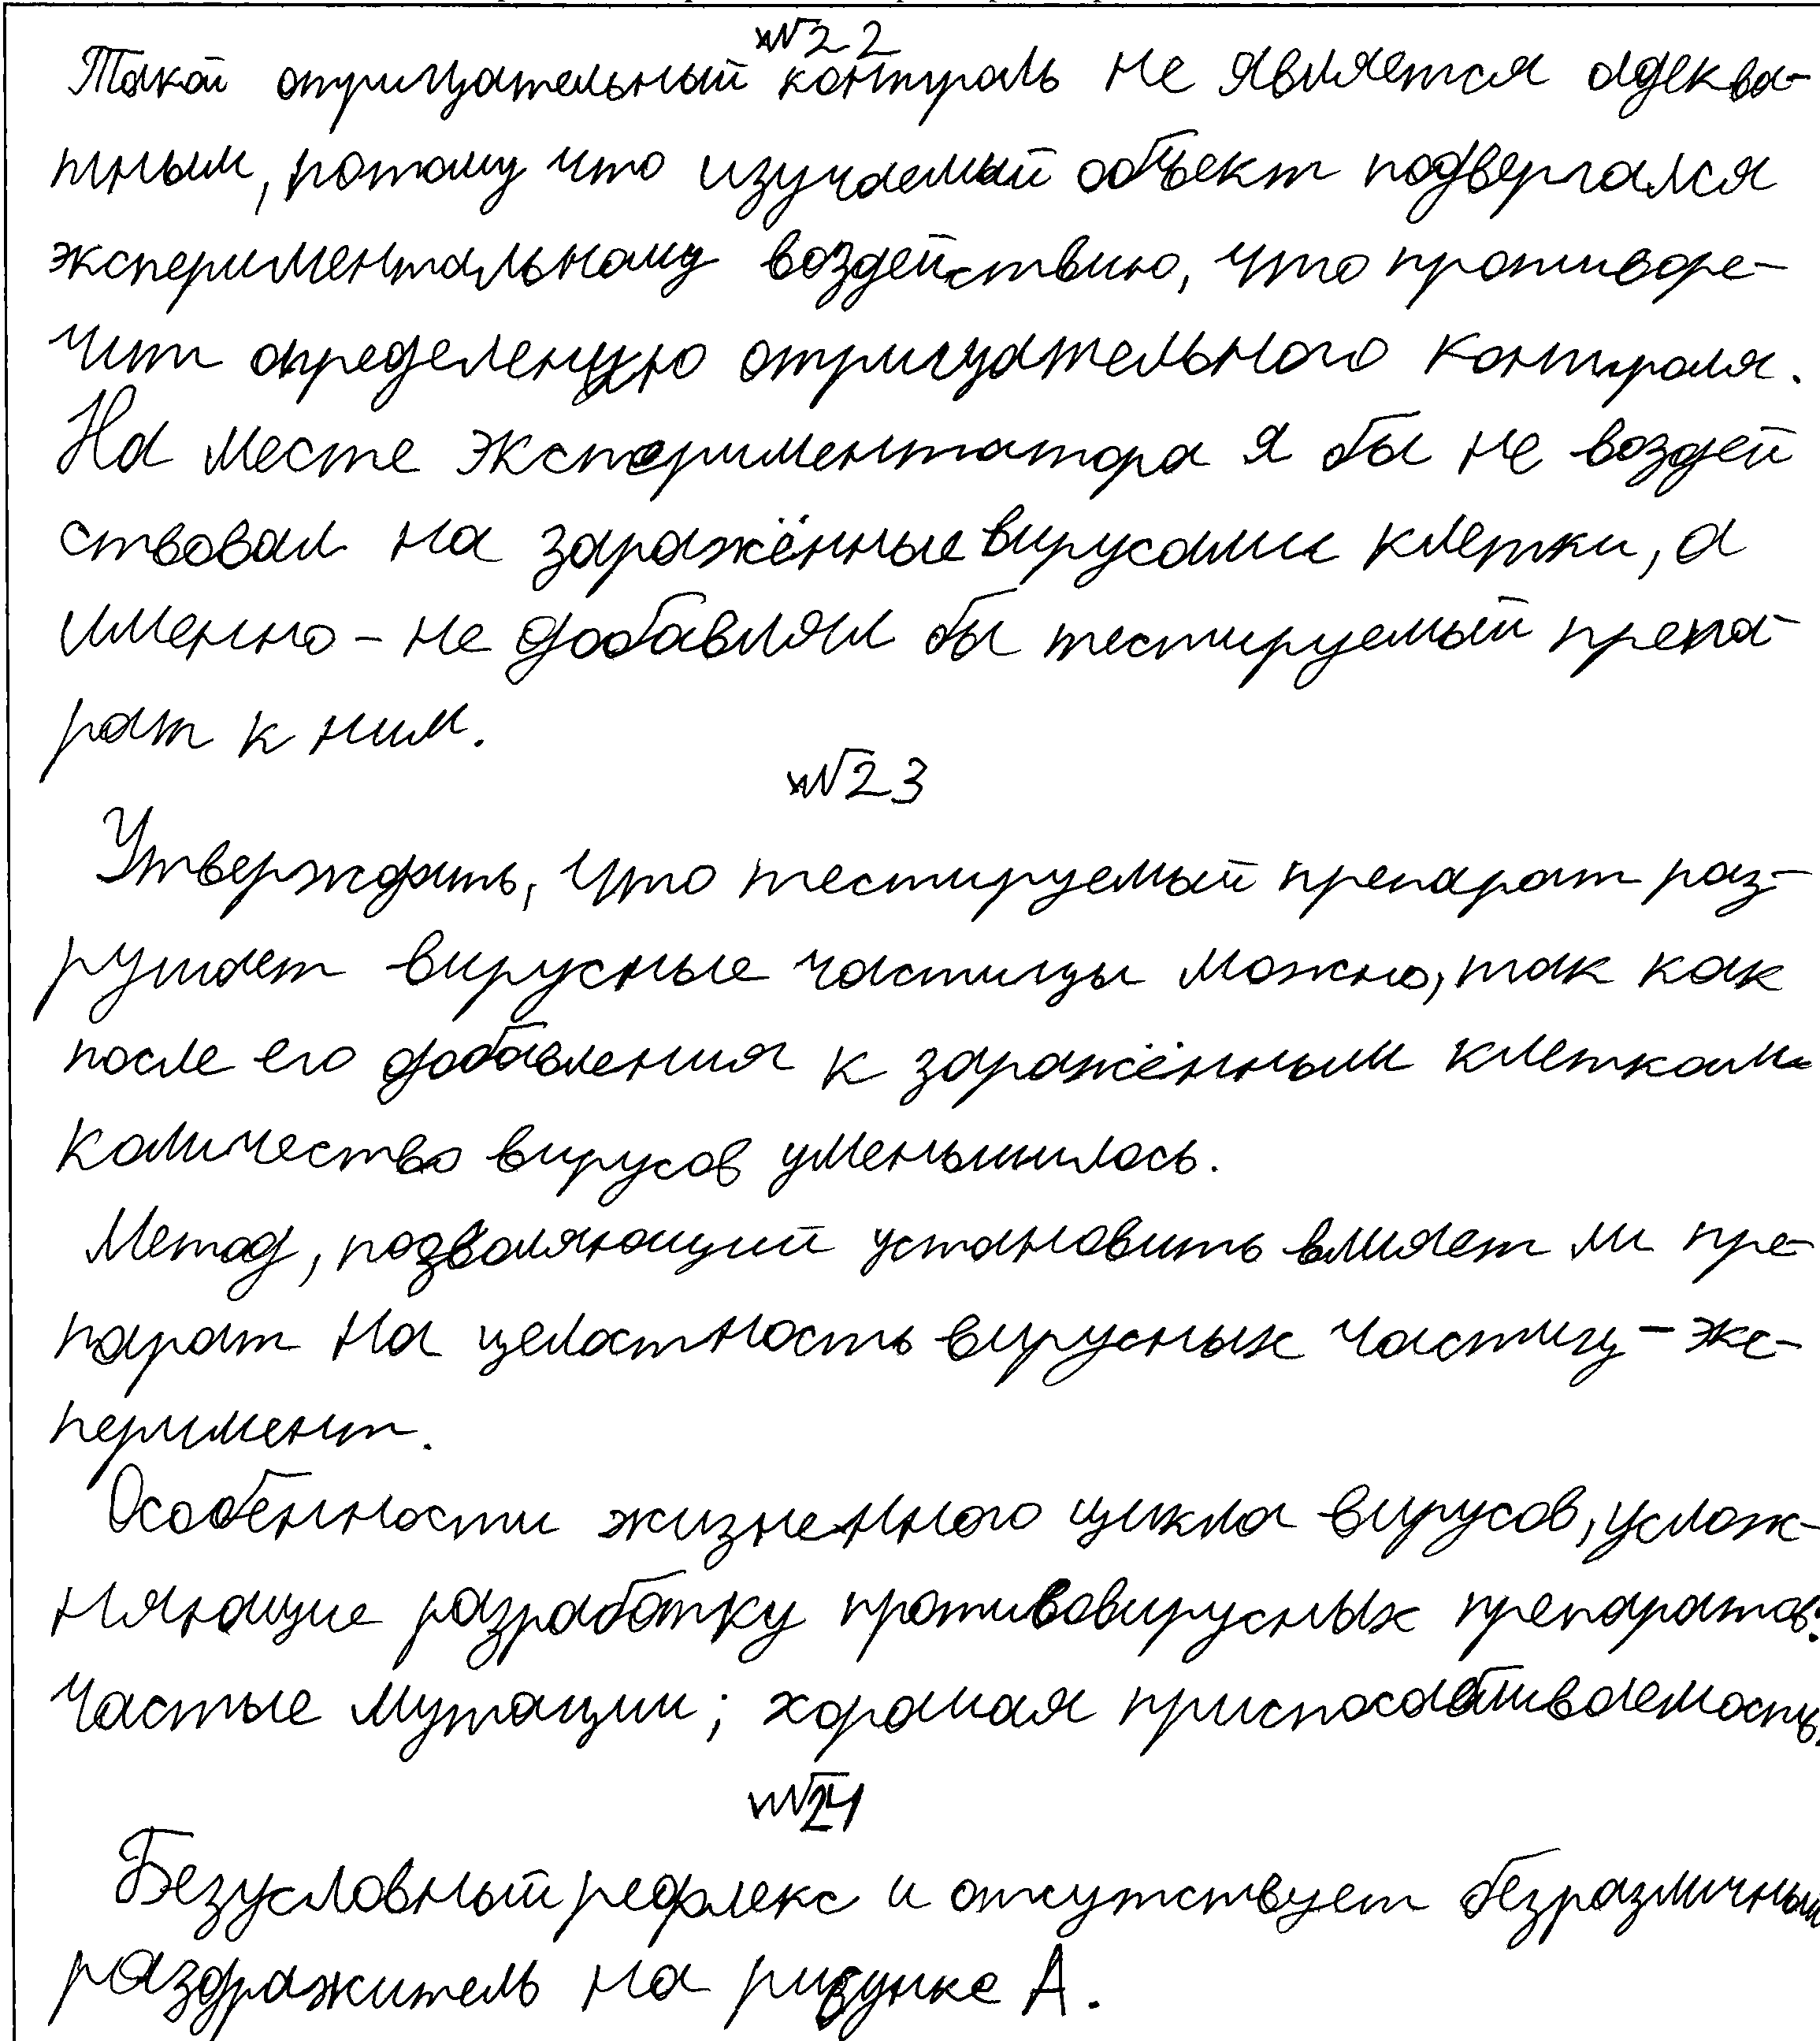 №22
Такой отрицательный контроль не является адеква-
тным, потому что изучаемый объект подвергался
экспериментальному воздействию, что противоре-
чит определению отрицательного контроля.
На месте экспериментатора я бы не воздей
ствовал на заражённые вирусами клетки, а
именно - не добавлял бы тестируемый препа-
рат к ним.
№23
Утверждать, что тестируемый препарат раз-
рушает вирусные частицы можно, так как
после его добавления к заражённым клеткам
количество вирусов уменьшилось.
Метод, позволяющий установить влияет ли пре-
парат на целостность вирусных частиц - экс-
перимент.
Особенности жизненного цикла вирусов, услож-
няющие разработку противовирусных препаратов:
частые мутации; хорошая приспосабливаемость.
№24
Безусловный рефлекс и отсутствует безразличный
раздражитель на рисунке А.